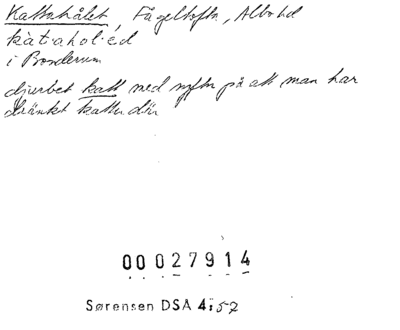 Kattahålet, Fågeltofta, Albo hd
kàt·ahol·éd
i Bonderum
djurbet katt med syftn på att man har
dränkt kattor där
00 027914
Sørensen DSA 4:52